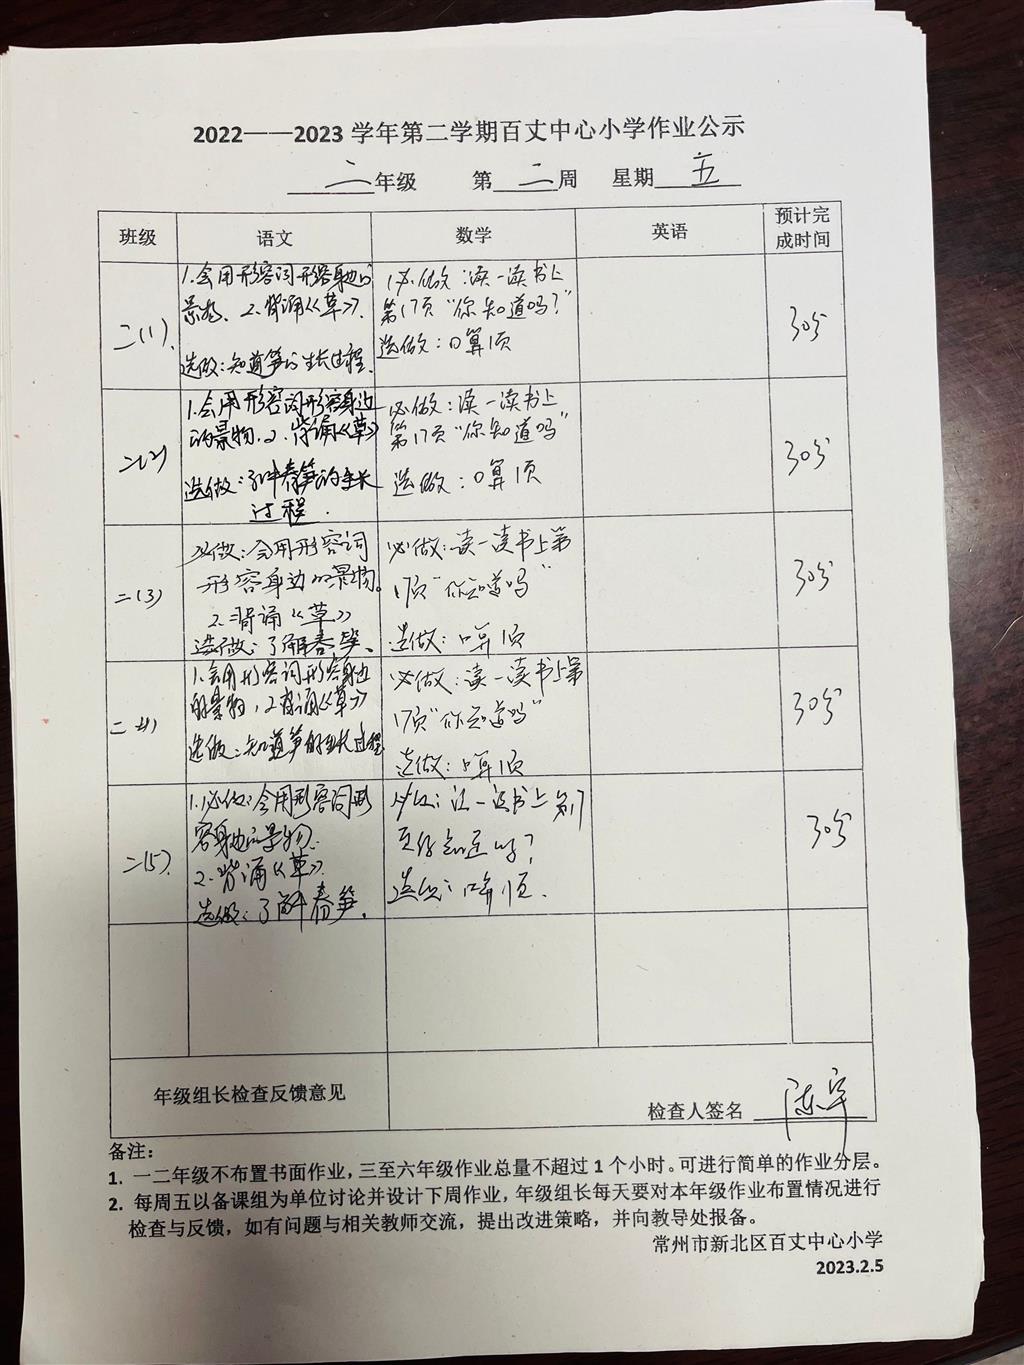 2022——2023 学年第二学期百丈中心小学作业公示
二年级 第二周 星期五
班级 语文 数学 英语 预计完
成时间
二(1).
1.会用形容词形容身边的
景物、2.背诵《草》.
选做:知道笋的生长过程.
1必做:读一读书上
第17页“你知道吗?”
选做:口算1页
30分
二(2)
1.会用形容词形容身边
的景物.2.背诵《草》
选做:了解春笋的生长
过程.
必做:读一读书上
第17页“你知道吗”
选做:口算1页
30分
二(3)
必做:会用形容词
形容身边的景物。
2.背诵《草》
选做:了解春笋、
必做:读一读书上第
17页“你知道吗”
选做:口算1页
30分
二(4)
1.会用形容词形容身边
的景物,2.背诵《草》
选做:知道笋的生长过程
必做:读一读书上第
17页“你知道吗”
选做:口算1页
30分
二(5).
1.必做:会用形容词形
容身边的景物.
2.背诵《草》.
选做:了解春笋.
必做:读一读书上第17
页你知道吗?
选做:口算1页.
30分
年级组长检查反馈意见
检查人签名 陈宇
备注:
1. 一二年级不布置书面作业,三至六年级作业总量不超过 1 个小时。可进行简单的作业分层。
2. 每周五以备课组为单位讨论并设计下周作业,年级组长每天要对本年级作业布置情况进行
检查与反馈,如有问题与相关教师交流,提出改进策略,并向教导处报备。
常州市新北区百丈中心小学
2023.2.5